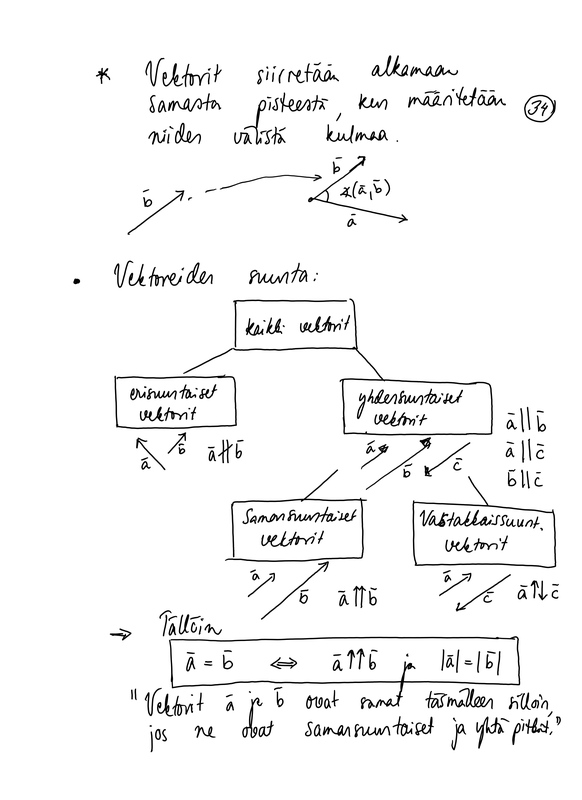 * Vektorit siirretään alkamaan
samasta pisteestä, kun määritetään
niiden välistä kulmaa.
34
b̄
b̄
∡(ā,b̄)
ā
• Vektoreiden suunta:
kaikki vektorit
erisuuntaiset
vektorit
yhdensuuntaiset
vektorit
ā b̄ ā∦b̄
ā b̄ c̄
ā||b̄
ā||c̄
b̄||c̄
Samansuuntaiset
vektorit
Vastakkaissuunt.
vektorit
ā b̄ ā⇈b̄
ā c̄ ā↑↓c̄
→ Tällöin
ā = b̄ ⇔ ā⇈b̄ ja |ā|=|b̄|
"Vektorit ā ja b̄ ovat samat täsmälleen silloin,
jos ne ovat samansuuntaiset ja yhtä pitkät."